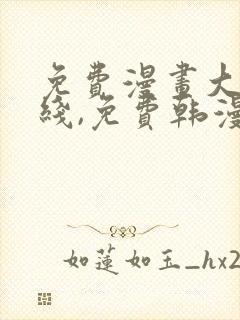 免費漫畫大
綫,免費韩漫
如蓮如玉_hx2